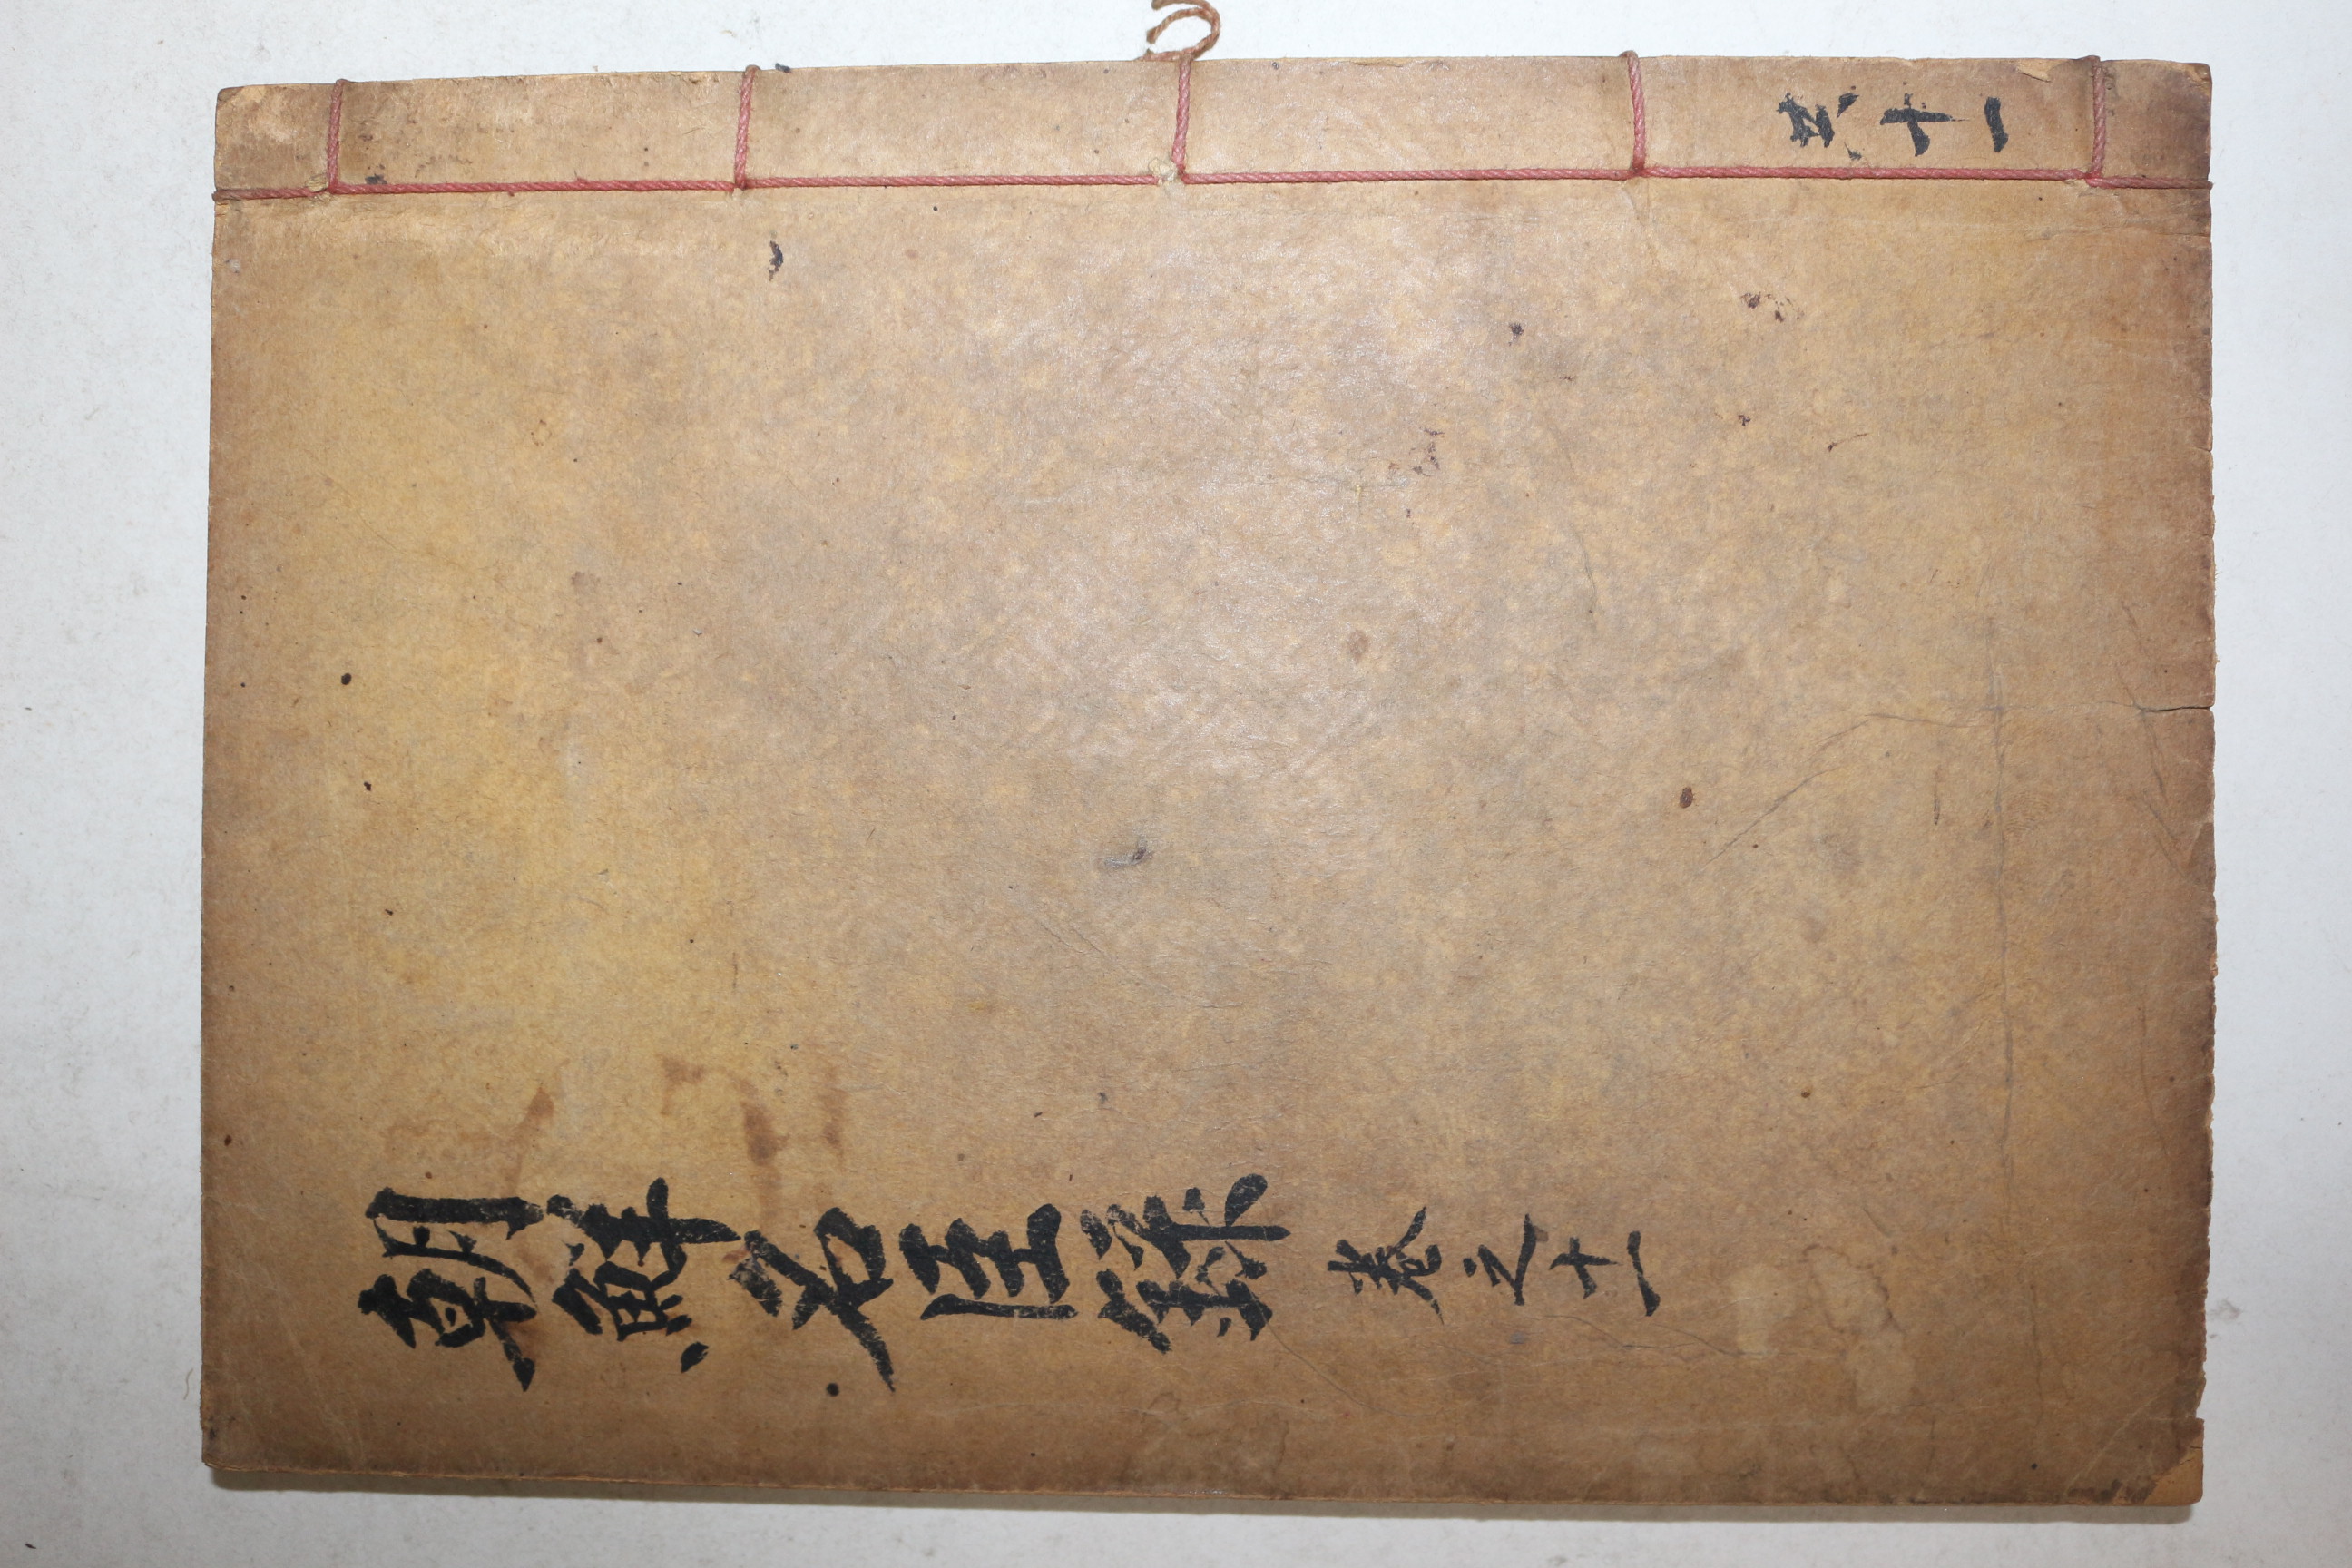 共十一
朝鮮名臣錄 卷之十一